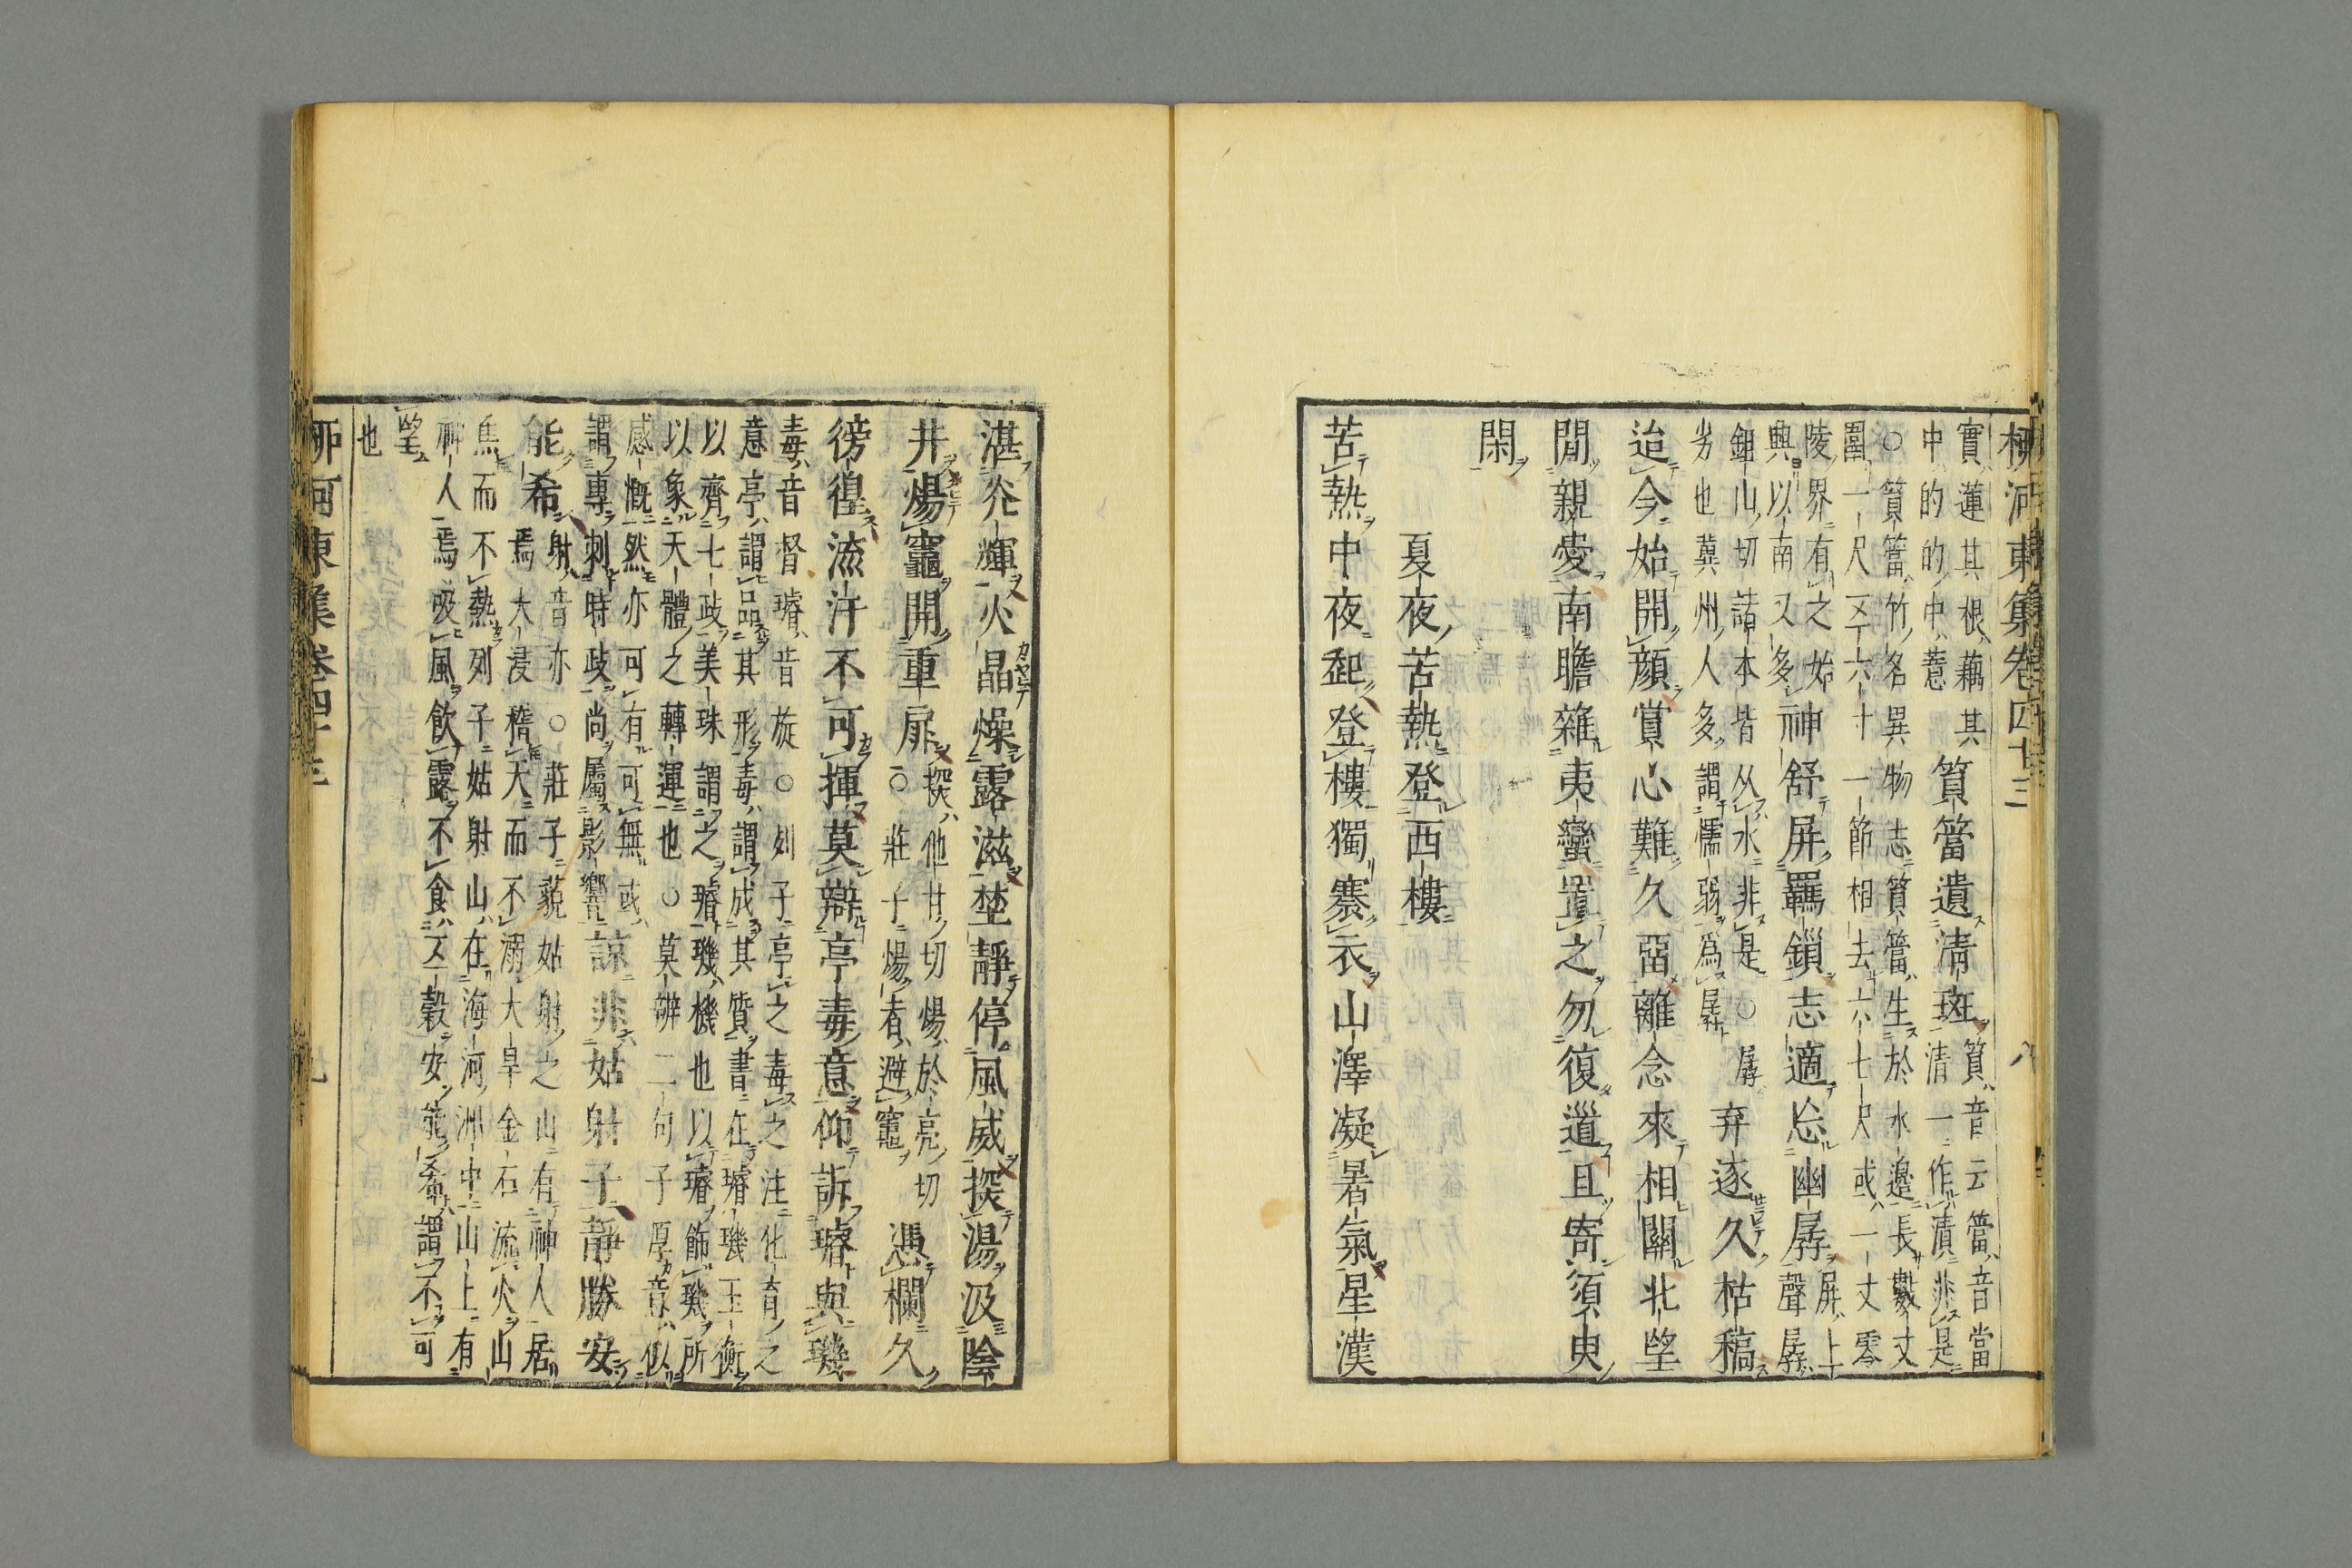 柳河東集卷四十三　八
實蓮其根藕其
中的的中薏
篔簹遺清斑
篔音云簹音當
清一作漬非是
○篔簹竹名異物志篔簹生於水邊長數丈
圍一尺五六寸一節相去六七尺或一丈零
陵界有之始
興以南又多
神舒屏羈鎖志適忘幽孱
屏上
聲孱
鉏山切諸本皆从水非是○孱
劣也冀州人多謂懦弱爲孱
弃逐久枯槁
迨今始開顔賞心難久畱離念來相關北望
閒親愛南瞻雜夷蠻置之勿復道且寄須臾
閑
夏夜苦熱登西樓
苦熱中夜起登樓獨褰衣山澤凝暑氣星漢
湛光輝火晶燥露滋埜靜停風威探湯汲陰
井煬竈開重扉
探他甘切煬於亮切
○莊子煬者避竈
憑欄久
徬徨流汗不可揮莫辯亭毒意仰訴璿與璣
毒音督璿音旋○列子亭之毒之注化育之
意亭謂品其形毒謂成其質書在璿璣玉衡
以齊七政美珠謂之璿璣機也以璿飾璣所
以象天體之轉運也○莫辨二句子厚意似
感慨然亦可有可無或
謂專刺時政尚屬影響
諒非姑射子靜勝安
能希
射音亦○莊子藐姑射之山有神人居
焉大浸稽天而不溺大旱金石流火山
焦而不熱列子姑射山在海河洲中山上有
神人焉吸風飲露不食五穀安能希謂不可
望
也
柳河東集卷四十三　九